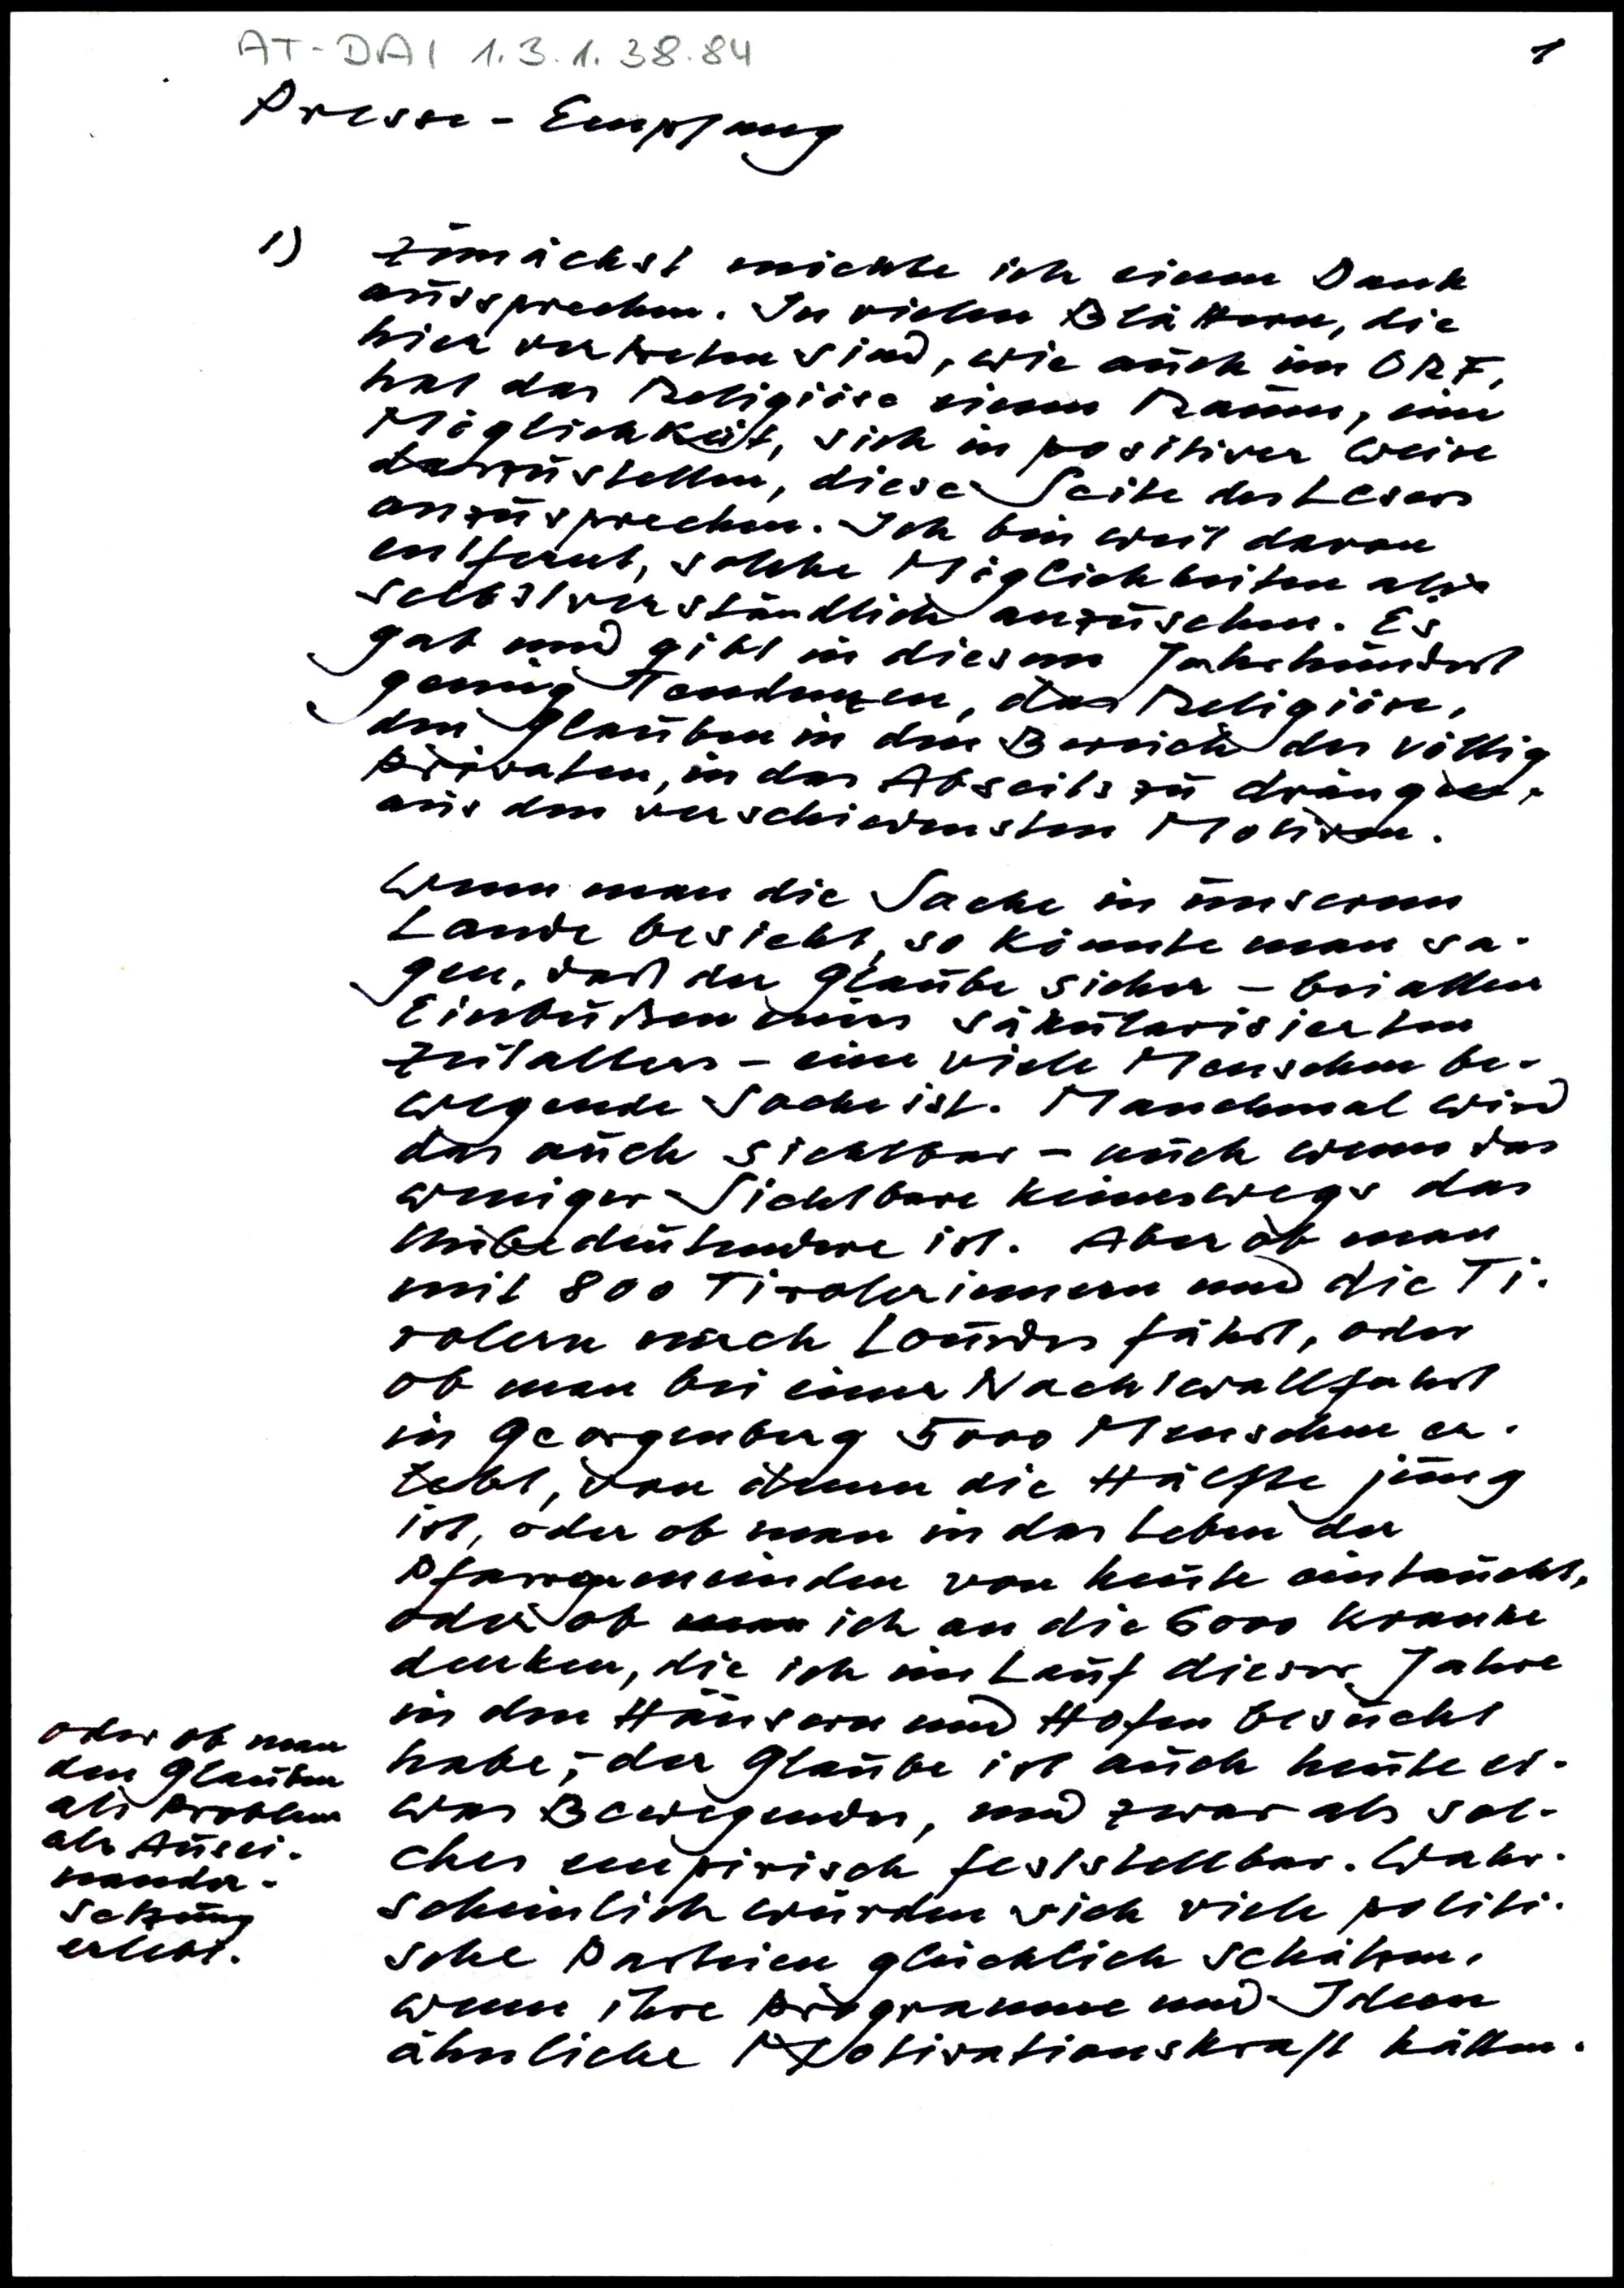 AT-DAI 1.3.1.38.84
1
Presse-Empfang
1) Zunächst möchte ich einen Dank
aussprechen. In vielen Blättern, die
hier vertreten sind, wie auch im ORF,
hat das Religiöse einen Raum, eine
Möglichkeit, sich in positiver Weise
darzustellen, diese Seite des Lesers
anzusprechen. Ich bin weit davon
entfernt, solche Möglichkeiten als
selbstverständlich anzusehen. Es
gab und gibt in diesem Jahrhundert
genug Tendenzen, das Religiöse,
den Glauben in den Bereich des völlig
Privaten, in das Abseits zu drängen,
aus den verschiedensten Motiven.
Wenn man die Sache in unserem
Lande besieht, so könnte man sa-
gen, daß der Glaube sicher - bei allen
Einbußen eines säkularisierten
Zeitalters - eine viele Menschen be-
wegende Sache ist. Manchmal wird
das auch sichtbar - auch wenn das
weniger Sichtbare keineswegs das
Unbedeutendere ist. Aber ob man
mit 800 Tirolerinnern und die Ti-
rolern nach Lourdes fährt, oder
ob man bei einer Nachtwallfahrt
in Georgenberg 5000 Menschen er-
lebt, von denen die Hälfte jung
ist, oder ob man in das Leben der
Pfarrgemeinden von heute eintaucht,
oder ob man ich an die 6000 Kranke
denken, die ich im Lauf dieser Jahre
in den Häusern und Höfen besucht
habe, - der Glaube ist auch heute et-
was Bewegendes, und zwar als sol-
ches empirisch feststellbar. Wahr-
scheinlich würden sich viele politi-
sche Parteien glücklich schätzen,
wenn ihre Programme und Ideen
ähnliche Motivationskraft hätten.
oder ob man
den Glauben
als Problem
als Ausei-
nander-
setzung
erlebt.